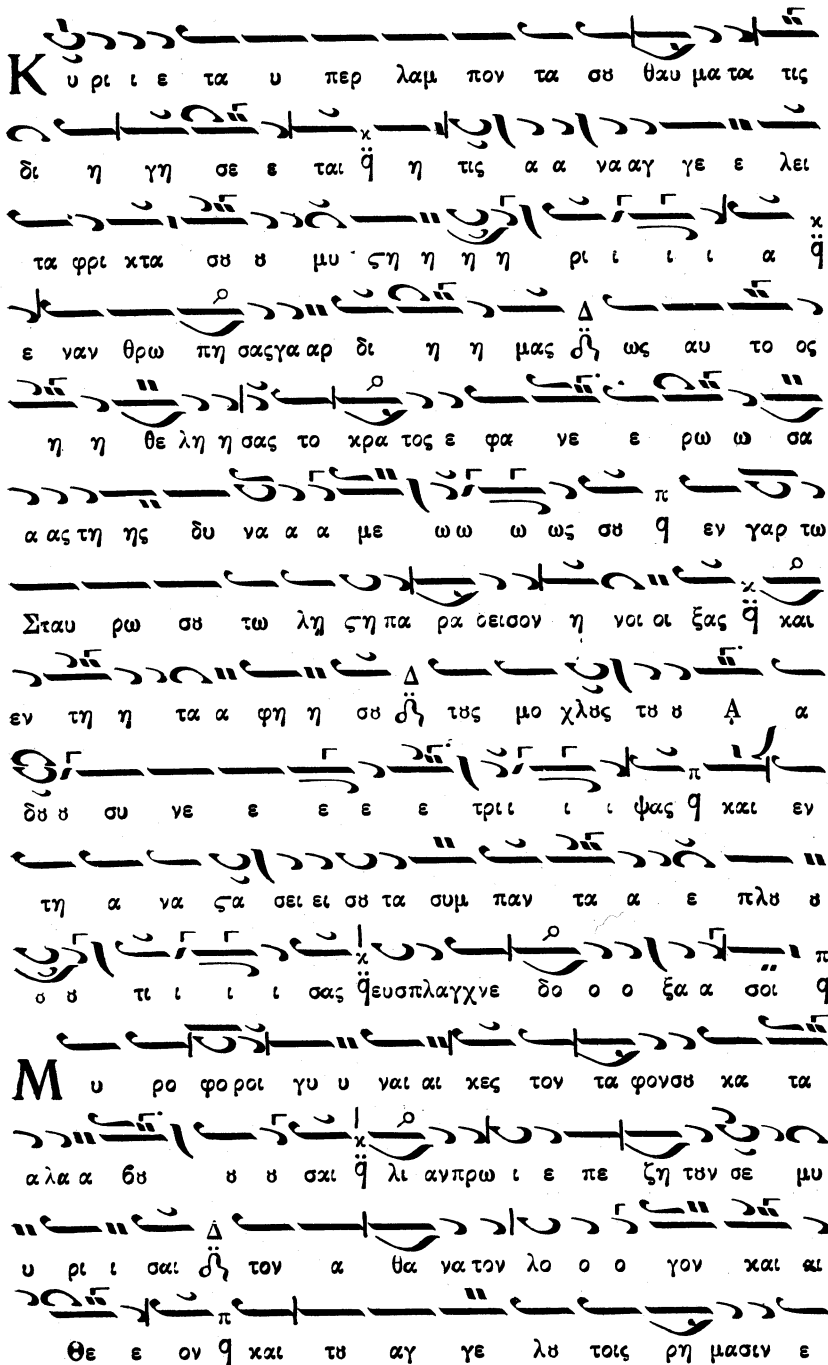 Κ υ ρι ι ε τα υ περ λαμ πον τα σȣ θαυ μα τα τις
δι η γη σε ε ται q̈ η τις α α να αγ γε ε λει
τα φρι κτα σȣ ȣ μυ ςη η η η ρι ι ι ι α q̈
ε ναν θρω πη σας γα αρ δι η η μας Δ ως αυ το ος
η η θε λη η σας το κρα τος ε φα νε ε ρω ω σα
α ας τη ης δυ να α α με ω ω ω ως σȣ π q εν γαρ τω
Σταυ ρω σȣ τω λη ςη πα ρα δεισον η νοι οι ξας q̈ και
εν τη η τα α φη η σȣ Δ τȣς μο χλȣς τȣ ȣ Α α
δȣ ȣ συ νε ε ε ε ε τρι ι ι ι ψας π q και εν
τη α να ςα σει ει σȣ τα συμ παν τα α ε πλȣ ȣ
ȣ ȣ τι ι ι ι σας q̈ ευσπλαγχνε δο ο ο ξα α σοι π q
Μ υ ρο φο ροι γυ υ ναι αι κες τον τα φον σȣ κα τα
α λα α βȣ ȣ ȣ σαι q̈ λι αν πρω ι ε πε ζη τȣν σε μυ
υ ρι ι σαι Δ τον α θα να τον λο ο ο γον και αι
Θε ε ον π q και τȣ αγ γε λȣ τοις ρη μασιν ε